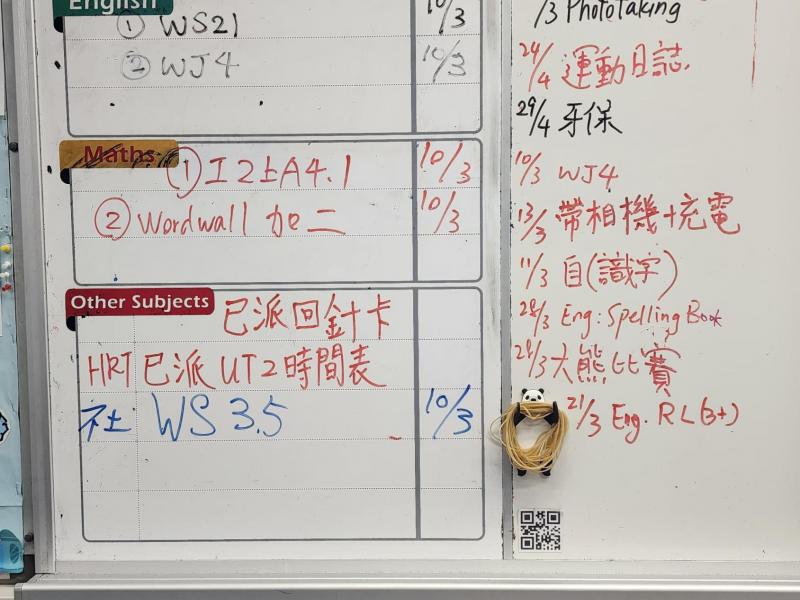 English
① WS21 10/3
② WJ4 10/3
Maths
① 工2上A4.1 10/3
② Wordwall 加二 10/3
Other Subjects
已派回針卡
HRT 已派 UT2 時間表
社 WS 3.5 10/3
/3 PhotoTaking
24/4 運動日誌
29/4 牙保
10/3 WJ4
13/3 帶相機+充電
11/3 自(識字)
28/3 Eng: Spelling Book
28/3 大熊比賽
21/3 Eng. RL(3+)